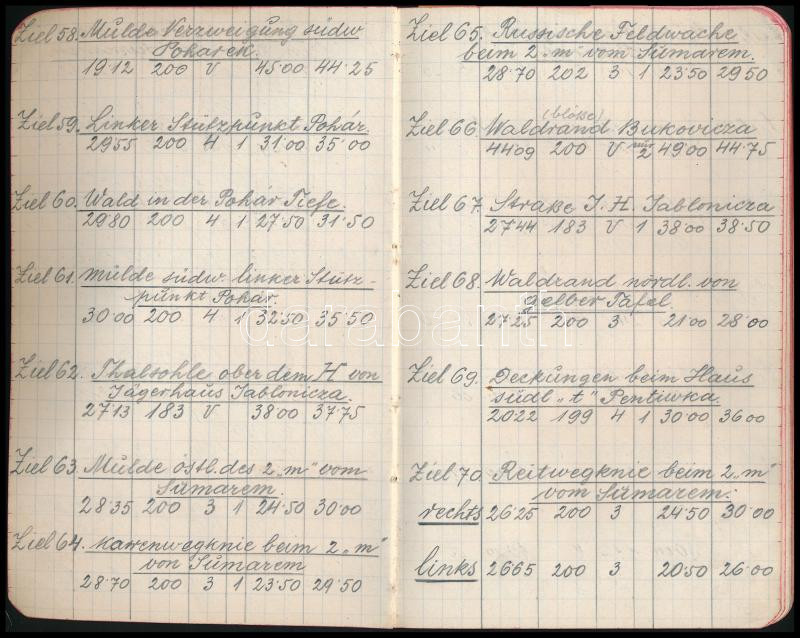 Ziel 58. Mulde Verzweigung südw
Poharek.
1912 200 V 45·00 44·25
Ziel 59. Linker Stützpunkt Pohár.
2955 200 4 1 31·00 35·00
Ziel 60. Wald in der Pohár Tiefe.
2980 200 4 1 27·50 31·50
Ziel 61. Mulde südw. linker Stütz-
punkt Pohár.
3000 200 4 1 32·50 35·50
Ziel 62. Thalsohle ober dem H von
Jägerhaus Jablonicza.
2713 183 V 38·00 37·75
Ziel 63. Mulde östl. des 2 „m“ vom
Sumarem.
2835 200 3 1 24·50 30·00
Ziel 64. Karrenwegknie beim 2 „m“
von Sumarem
2870 200 3 1 23·50 29·50
Ziel 65. Russische Feldwache
beim 2 „m“ vom Sumarem.
28·70 202 3 1 23·50 29·50
(blösse)
Ziel 66. Waldrand Bukovicza
4409 200 V nur 2 49·00 44·75
Ziel 67. Straße J. H. Jablonicza
2744 183 V 1 38·00 38·50
Ziel 68. Waldrand nördl. von
gelber Tafel.
27·25 200 3 21·00 28·00
Ziel 69. Deckungen beim Haus
südl „t“ Pentiwka.
2022 199 4 1 30·00 36·00
Ziel 70. Reitwegknie beim 2 „m“
vom Sumarem.
rechts 26·25 200 3 24·50 30·00
links 2665 200 3 20·50 26·00
darabanth